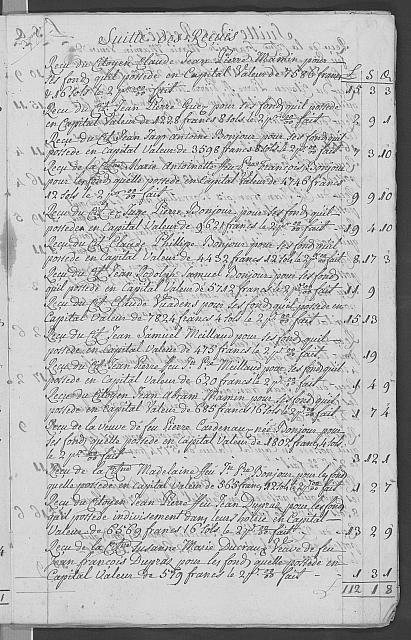 Suitte des Recüis
Reçu du Citoyen Claude Jean Pierre Mamin pour
ses fond, quil postede en Capital Valeur de 7586 francs
16 sols le 2 pr 00/00 fait - 15 3 3
Reçu du Ct Jean Pierre Guex pour ses fond quil postede
en Capital Valeur de 1228 francs 8 sols le 2 pr 00/00 fait - 2 9 1
Reçu du Ct Jean Jaq Antoine Bonjour pour ses fond quil
postede en Capital Valeur de 3598 francs 8 sols le 2 pr 00/00 fait 7 3 10
Reçu de la Marie Antoinette feu François Bonjour
pour les fond quelle postede en Capital Valeur de 4746 francs
12 sols le 2 pr 00/00 fait - 9 9 10
Reçu du Ct Pierre Bonjour pour ses fond quil
postede en Capital Valeur de 9621 francs le 2 pr 00/00 fait 19 4 10
Reçu du Ct Claude Phillipe Bonjour pour ses fond quil
postede en Capital Valeur de 4432 francs 12 sols le 2 pr 00/00 fait 8 17 3
Reçu du Ct Jean Samuel Bonjour pour ses fond
quil postede en Capital Valeur de 5712 francs le 2 pr 00/00 fait 11 9
Reçu du Ct Claude pour ses fond quil postede en
Capital Valeur de 7824 francs 4 sols le 2 pr 00/00 fait - 15 13
Reçu du Ct Jean Samuel Meillaud pour ses fond quil
postede en Capital Valeur de 475 francs le 2 pr 00/00 fait - 19
Reçu du Ct Jean Pierre feu Meillaud pour ses fond quil
postede en Capital Valeur de 620 francs le 2 pr 00/00 fait - 1 4 9
Reçu du Citoyen Jean Abram Mamin pour ses fond quil
postede en Capital Valeur de 685 francs 16 sols le 2 pr 00/00 fait - 1 7 4
Reçu de la Veuve de feu Pierre Cardenau née Bonjour pour
ses fond quelle postede en Capital Valeur de 1807 francs 4 sols
le 2 pr 00/00 fait - 3 12 1
Reçu de la Madelaine feu Bonjour pour les fond
quelle postede en Capital Valeur de 565 francs 12 sols le 2 pr 00/00 fait 1 2 7
Reçu du Citoyen Jean Pierre feu Jean Dupras pour les fond
quil postede indivisement dans leur hoirie en Capital
Valeur de 6569 francs 16 sols le 2 pr 00/00 fait - 13 2 9
Reçu de la Susanne Marie Ducraux Veuve de feu
Jean François Dupras pour les fond quelle postede en
Capital Valeur de 579 francs le 2 pr 00/00 fait - 1 3 1
112 1 8